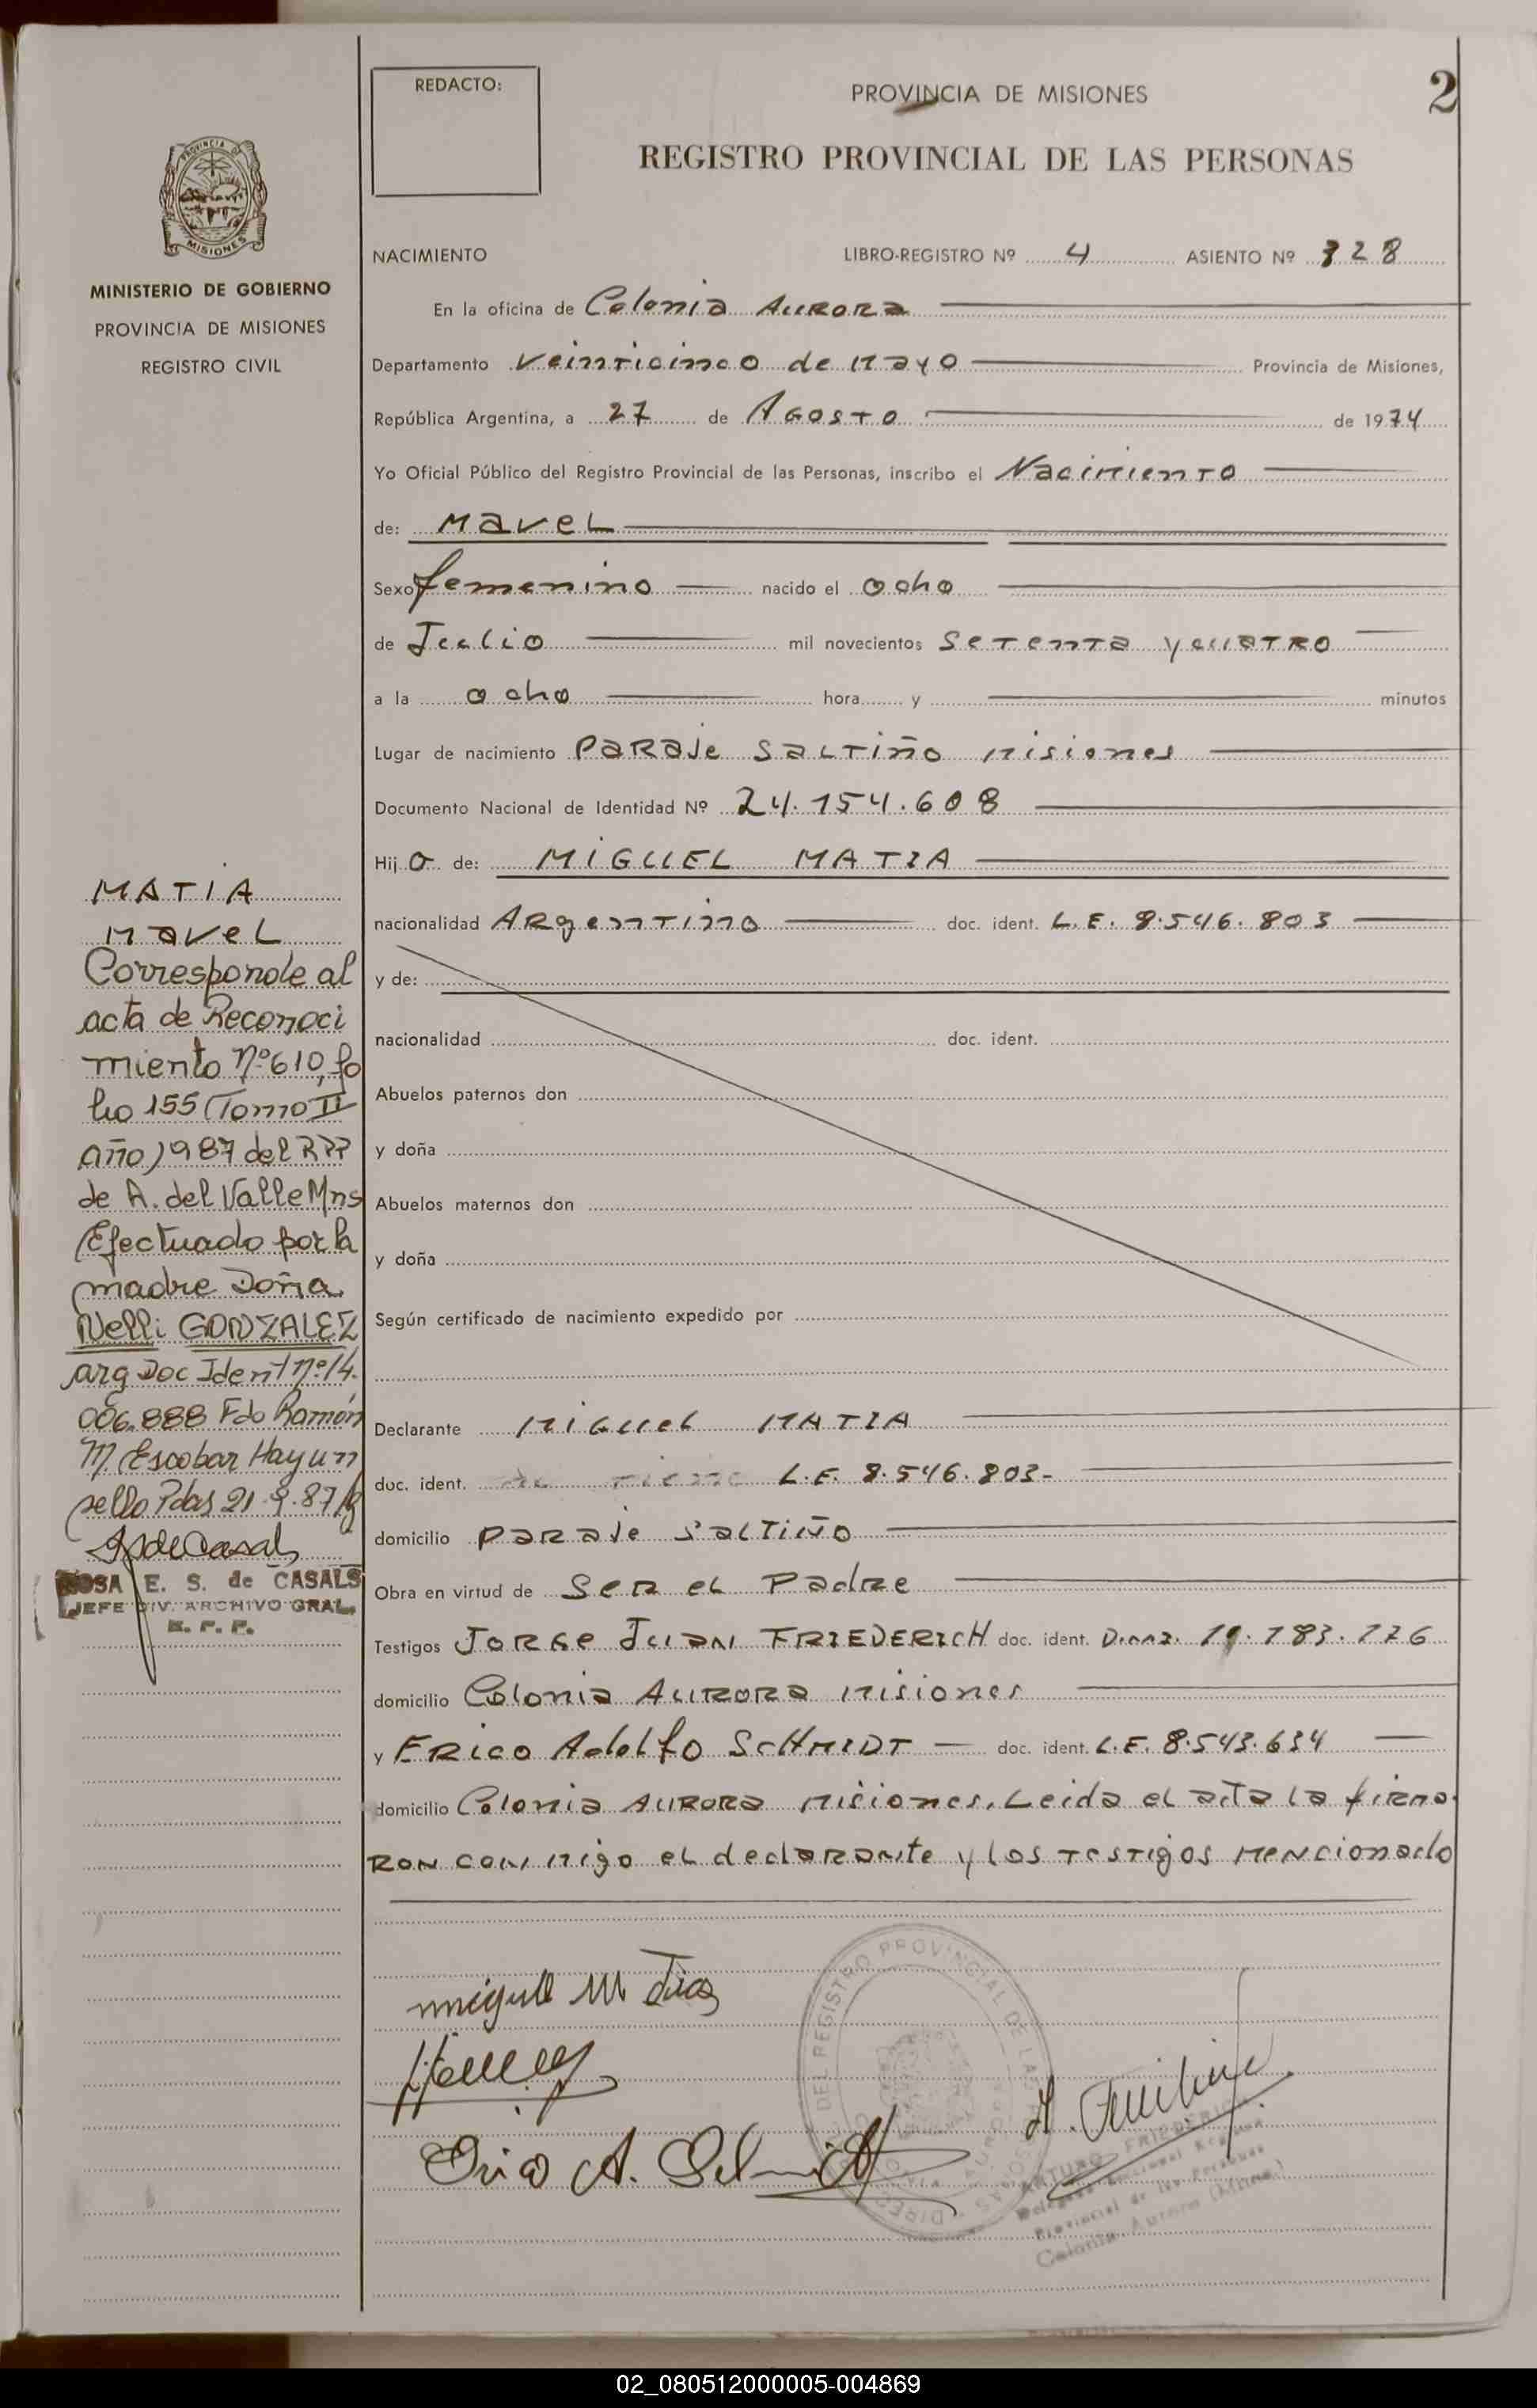 REDACTO:
PROVINCIA DE MISIONES
2
REGISTRO PROVINCIAL DE LAS PERSONAS
PROVINCIA DE
MISIONES
MINISTERIO DE GOBIERNO
PROVINCIA DE MISIONES
REGISTRO CIVIL
NACIMIENTO LIBRO-REGISTRO Nº 4 ASIENTO Nº 328
En la oficina de Colonia Aurora
Departamento veinticinco de Mayo Provincia de Misiones,
República Argentina, a 27 de Agosto de 1974
Yo Oficial Público del Registro Provincial de las Personas, inscribo el Nacimiento
de: Mavel
Sexo femenino nacido el ocho
de Julio mil novecientos setenta y cuatro
a la ocho hora y minutos
Lugar de nacimiento Paraje Saltiño Misiones
Documento Nacional de Identidad Nº 24.154.608
Hij a de: MIGUEL MATIA
nacionalidad Argentino doc. ident. L.E. 8.546.803
y de:
nacionalidad doc. ident.
Abuelos paternos don
y doña
Abuelos maternos don
y doña
Según certificado de nacimiento expedido por
Declarante Miguel MATIA
doc. ident. L.E. 8.546.803-
domicilio Paraje Saltiño
Obra en virtud de Ser el Padre
Testigos Jorge Juan FRIEDERICH doc. ident. D.N.I. 11.183.176
domicilio Colonia Aurora Misiones
y Erico Adolfo SCHMIDT doc. ident. L.E. 8.543.634
domicilio Colonia Aurora Misiones. Leida el acta la firma-
ron conmigo el declarante y los testigos mencionado
MATIA
Mavel
Corresponde al
acta de Reconoci
miento Nº 610, fo
lio 155 (Tomo II
año 1987 del RPP
de A. del Valle Mns
Efectuado por la
madre Doña
Nelli GONZALEZ
arg Doc Ident nº 14.
006.888 Fdo Ramón
M. Escobar Hay un
sello Pdas 21.9.87
ROSA E. S. de CASALS
JEFE DIV. ARCHIVO GRAL.
R. P. P.
miguel M Tias
Erico A. Schmidt
DEL REGISTRO PROVINCIAL DE LAS
ARTURO FRIDERICH
Provincial de las Personas
Colonia Aurora (Mnes.)
02_080512000005-004869